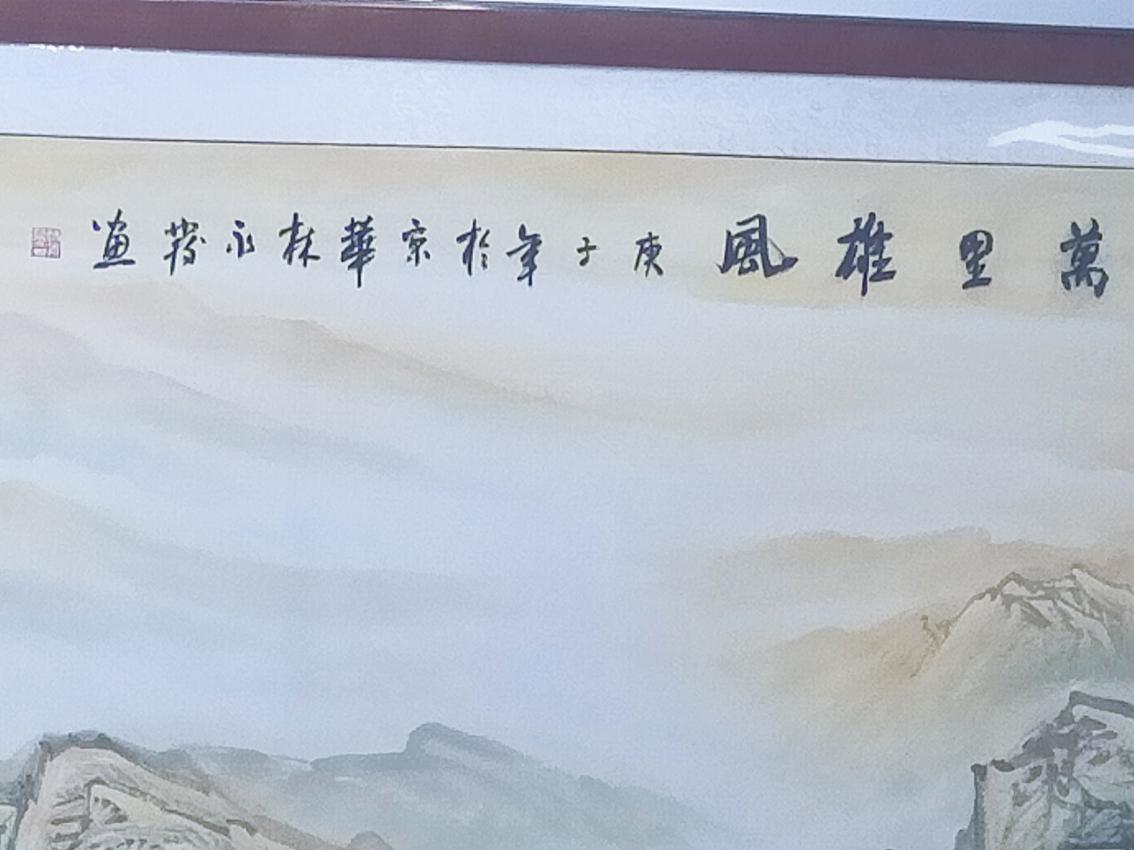 萬里雄風 庚子年於京華林永發畫